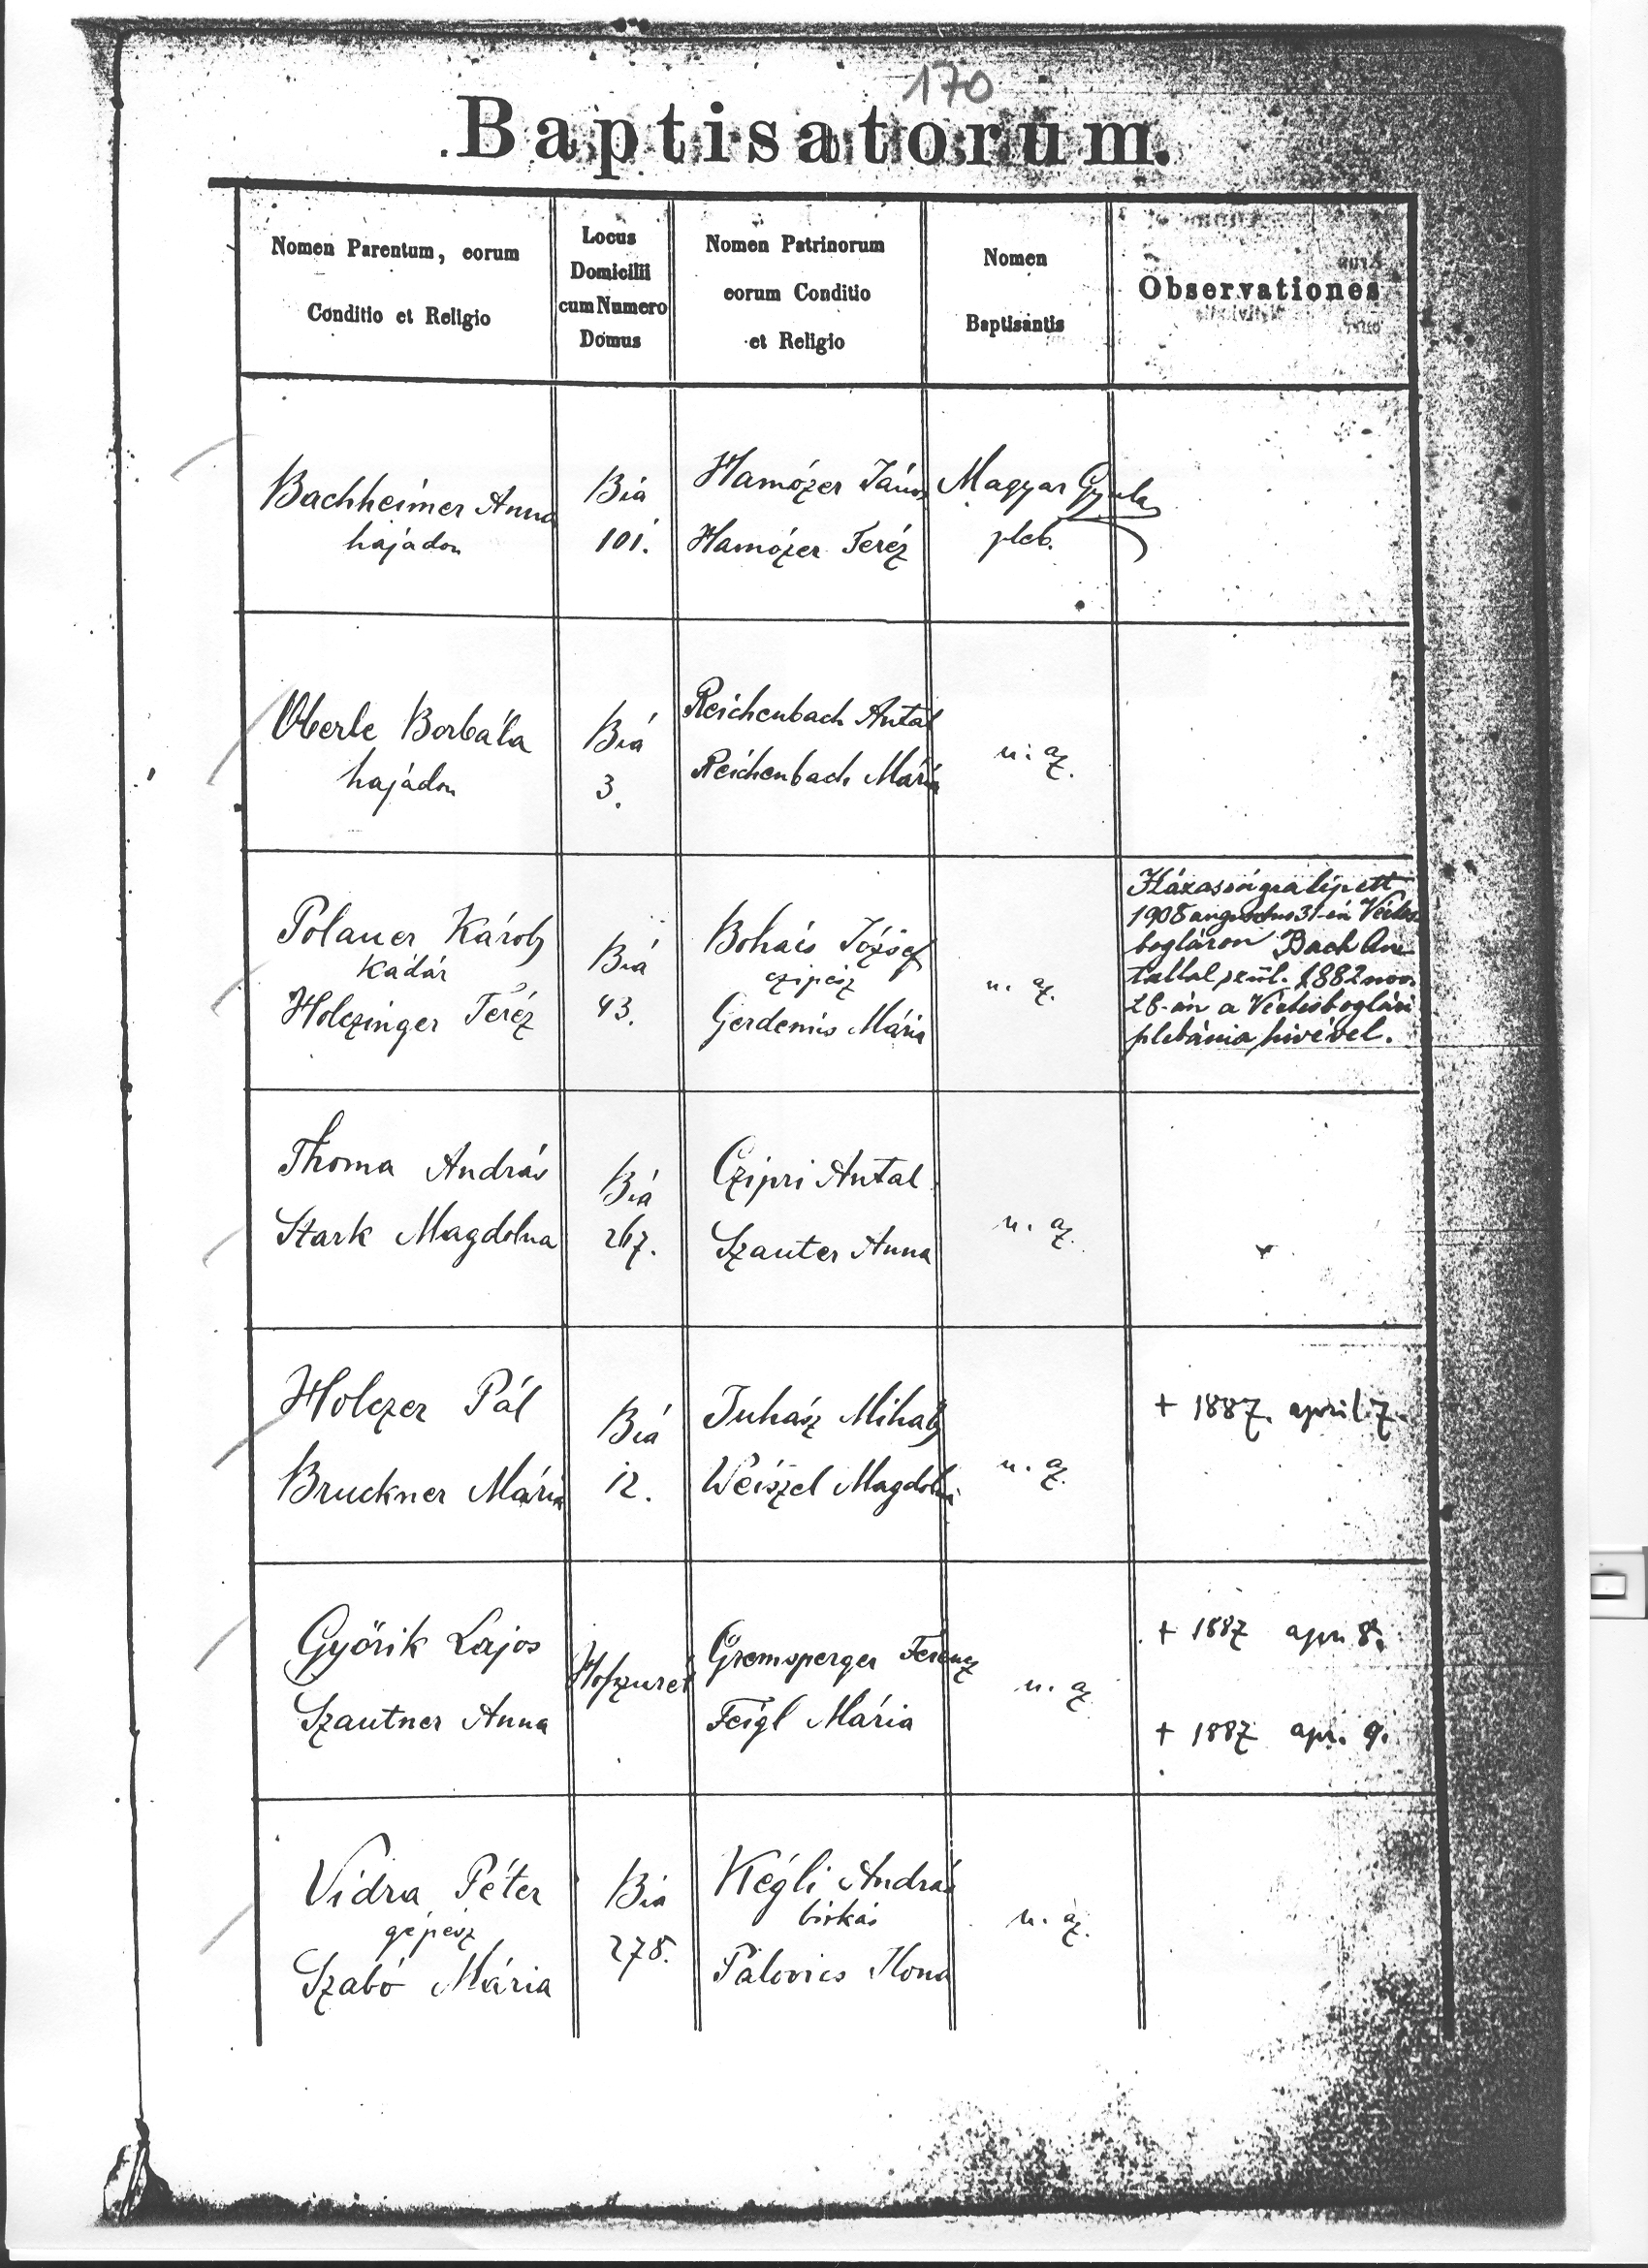 170
Baptisatorum.
Nomen Parentum, eorum
Conditio et Religio
Locus
Domicilii
cum Numero
Domus
Nomen Patrinorum
eorum Conditio
et Religio
Nomen
Baptisantis
Observationes
Bachheimer Anna
hajadon
Bia
101.
Hamózer János
Hamózer Teréz
Magyar Gyula
pleb.
Oberle Borbála
hajádon
Biá
3.
Reichenbach Antal
Reichenbach Mária
u. az.
Polauer Károly
Kádár
Holczinger Teréz
Biá
43.
Bohács József
czipész
Gerdenits Mária
u. az.
Házasságra lépett
1908 augusztus 31-én Vértes
bogláron Bach An
tallal szül. 1882 nov.
28-án a Vértesboglári
plebánia hivével.
Thoma András
Stark Magdolna
Biá
267.
Czipri Antal
Szauter Anna
u. az.
Holczer Pál
Bruckner Mária
Biá
12.
Juhász Mihály
Weiszel Magdolna
u. az.
+ 1887. april. 7.
Győrik Lajos
Szautner Anna
Gremsperger Ferencz
Feigl Mária
u. az
+ 1887 apr. 8.
+ 1887 apr. 9.
Vidra Péter
gépész
Szabó Mária
Bia
278.
Kégli András
birkás
Palovics Ilona
u. az.